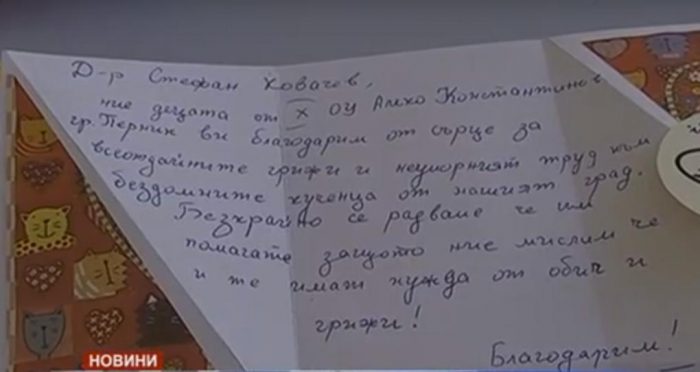 Д-р Стефан Ковачев,
ние децата от X ОУ Алеко Константинов
гр. Перник ви благодарим от сърце за
всеотдайните грижи и неуморният труд към
бездомните кученца от нашият град.
Безкрайно се радваме че им
помагате защото ние мислим че
и те имат нужда от обич и
грижи!
Благодарим!
НОВИНИ